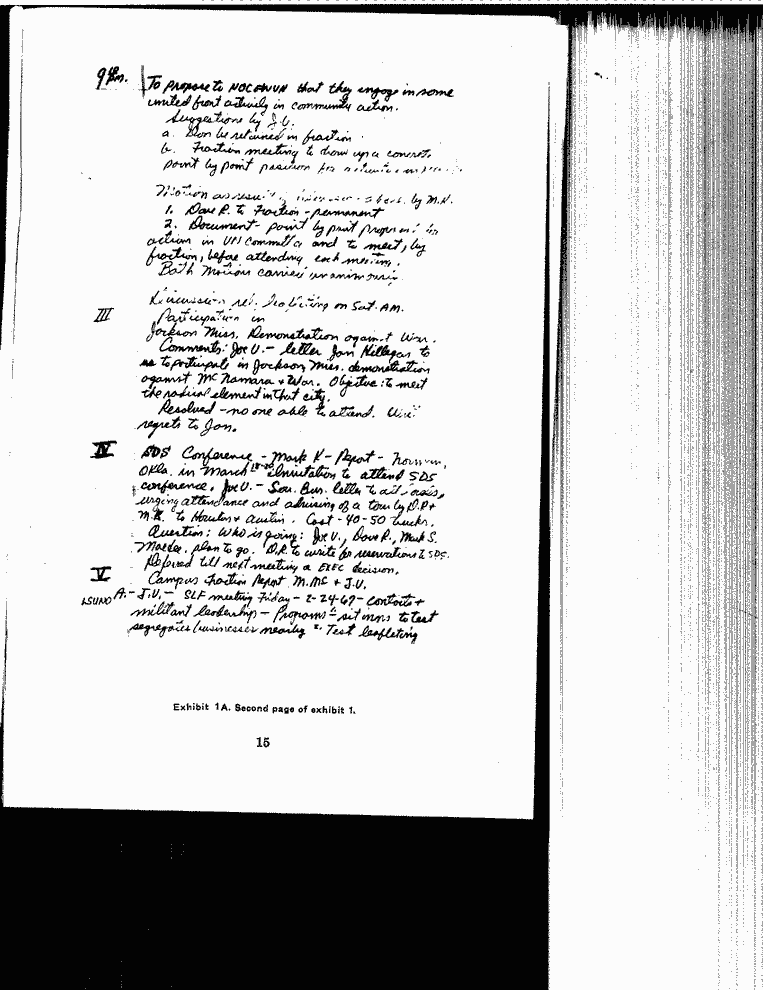 9 pm.
To propose to NOCEWVN that they engage in some
united front activity in community action.
Suggestions by J.V.
a. Don be retained in fraction
b. Fraction meeting to draw up a concrete
point by point position for
Motion as result by M.K.
1. Dave R. to Fraction - permanent
2. Document - point by point proposal for
action in VN committee and to meet, by
fraction, before attending each meeting.
Both motions carried unanimously.
Discussion rel. leafleting on Sat. AM.
III Participation in
Jackson Miss. Demonstration against War.
Comments: Joe V. - letter Jan Hillegas to
us to participate in Jackson, Miss. demonstration
against McNamara & War. Objective: to meet
the radical element in that city.
Resolved - no one able to attend. Write
regrets to Jan.
IV SDS Conference - Mark K - Report - Norman,
Okla. in March Invitation to attend SDS
conference. Joe V. - Sou. Bur. letter to all areas,
urging attendance and advising of a tour by D.P +
M.K. to Houston & Austin. Cost - 40-50 bucks.
Question: Who is going: Joe V., Dave R., Mark S.
plan to go. D.R. to write for reservations to SDS.
Refered till next meeting a EXEC decision.
V Campus Fraction Report M.MC + J.V.
LSUNO A. - J.V. - SLF meeting Friday - 2-24-67 - contacts +
militant leadership - Programs sit inns to test
segregates businesses nearby Test leafleting
Exhibit 1A. Second page of exhibit 1.
15